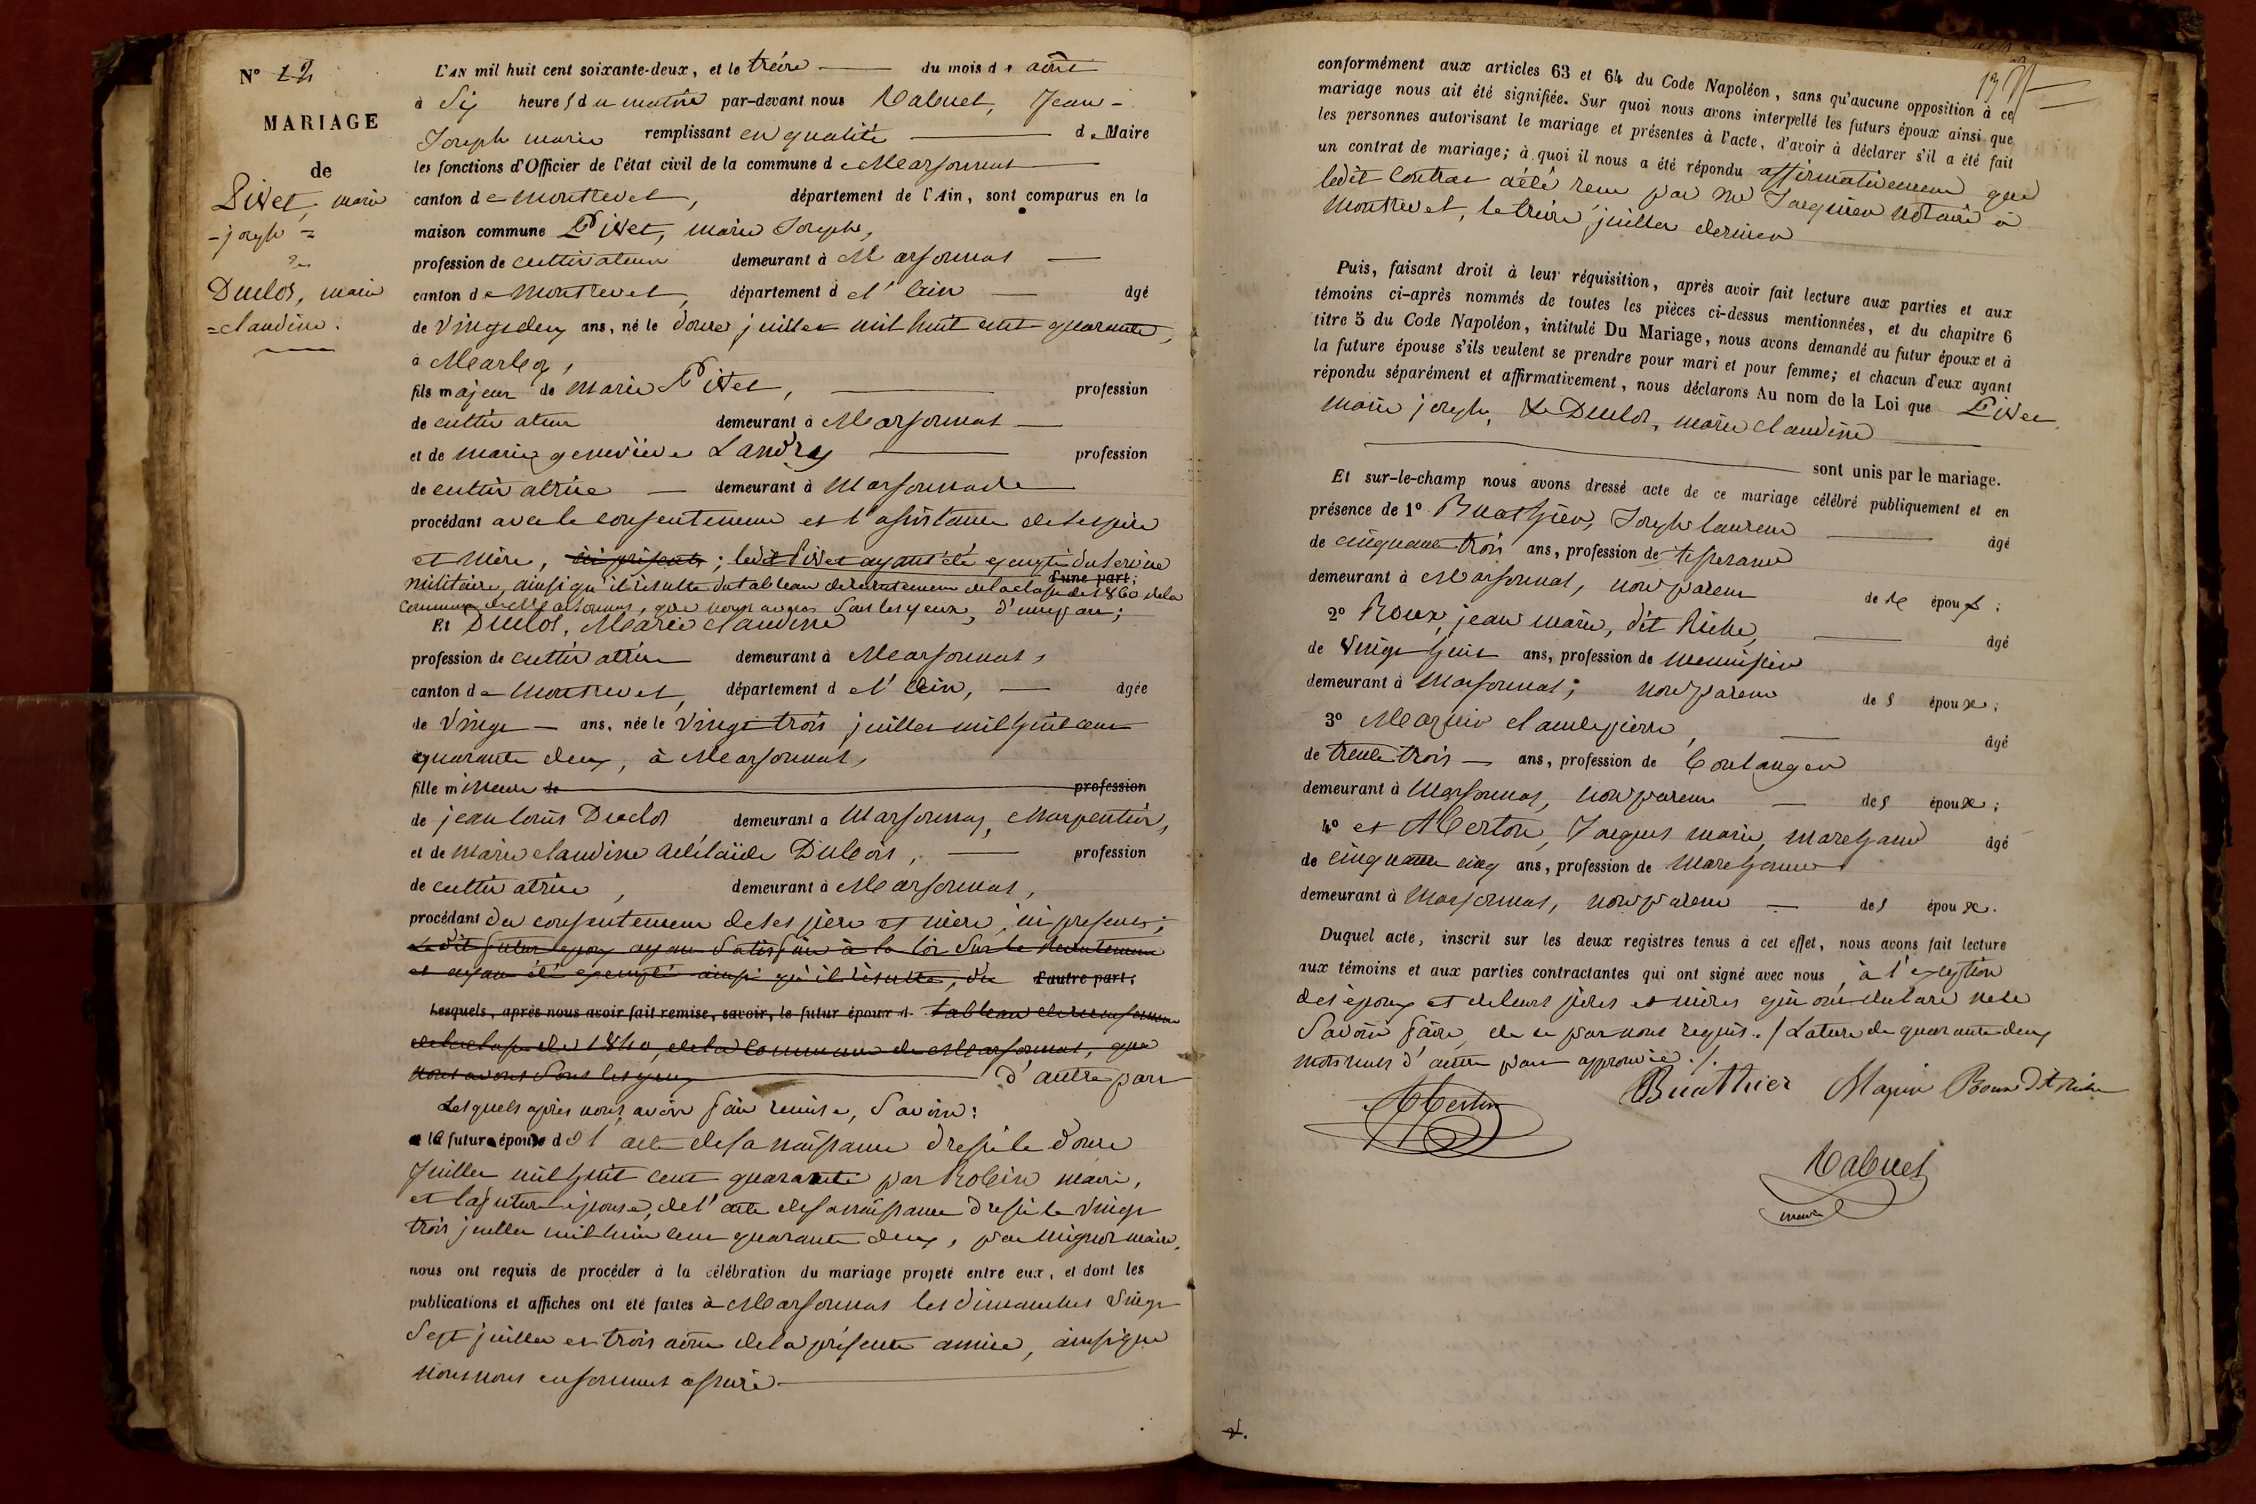 N° 12
MARIAGE
de
Pivet, marie
=joseph=
&
Duclos, marie
=claudine.
L'AN mil huit cent soixante-deux, et le treize du mois d'août
à Six heures du matin par-devant nous Rabuel, Jean-
Joseph marie remplissant en qualité de Maire
les fonctions d'Officier de l'état civil de la commune de Marsonnas
canton de Montrevel, département de l'Ain, sont comparus en la
maison commune Pivet, marie Joseph,
profession de cultivateur demeurant à Marsonnas
canton de Montrevel, département de l'ain âgé
de vingt deux ans, né le douze juillet mil huit cent quarante,
à Marboz,
fils majeur de Marie Pivet, profession
de cultivateur demeurant à Marsonnas
et de marie genevieve Landry profession
de cultivatrice demeurant à Marsonnas
procédant avec le consentement et l'assistance de ses père
et mère, ici présents ; ledit Pivet ayant été exempté du service
d'une part;
militaire, ainsi qu'il résulte du tableau de recrutement de la classe de 1860 de la
commune de Marsonnas, que nous avons sous les yeux, d'une part;
Et Duclos, Marie claudine
profession de cultivatrice demeurant à Marsonnas,
canton de Montrevel, département de l'ain, âgée
de vingt ans, née le vingt trois juillet mil huit cent
quarante deux, à Marsonnas,
fille mineure de profession
de jean louis Duclos demeurant à Marsonnas, charpentier,
et de marie claudine adélaïde Dubois, profession
de cultivatrice, demeurant à Marsonnas,
procédant du consentement de ses père et mère, ici présents;
le dit futur époux ayant satisfait à la loi sur le recrutement
et ayant été exempté ainsi qu'il résulte, du d'autre part;
Lesquels, après nous avoir fait remise, savoir, le futur époux d. tableau de recensement
de la classe de 1840, de la commune de Marsonnas, que
nous avons sous les yeux d'autre part
Lesquels après nous avoir fait remise, savoir:
le futur époux de l'acte de sa naissance dressé le douze
juillet mil huit cent quarante par Robin maire,
et la future épouse, de l'acte de sa naissance dressé le vingt
trois juillet mil huit cent quarante deux, par mignot maire,
nous ont requis de procéder à la célébration du mariage projeté entre eux, et dont les
publications et affiches ont été faites à Marsonnas les dimanches vingt
sept juillet et trois août de la présente année, ainsi que
nous nous en sommes assuré
conformément aux articles 63 et 64 du Code Napoléon, sans qu'aucune opposition à ce
mariage nous ait été signifiée. Sur quoi nous avons interpellé les futurs époux ainsi que
les personnes autorisant le mariage et présentes à l'acte, d'avoir à déclarer s'il a été fait
un contrat de mariage; à quoi il nous a été répondu affirmativement que
ledit contrat a été reçu par Me Jacquier notaire à
Montrevel, le treize juillet dernier
Puis, faisant droit à leur réquisition, après avoir fait lecture aux parties et aux
témoins ci-après nommés de toutes les pièces ci-dessus mentionnées, et du chapitre 6
titre 5 du Code Napoléon, intitulé Du Mariage, nous avons demandé au futur époux et à
la future épouse s'ils veulent se prendre pour mari et pour femme; et chacun d'eux ayant
répondu séparément et affirmativement, nous déclarons Au nom de la Loi que Pivet
Marie joseph, & Duclos, marie claudine
sont unis par le mariage.
Et sur-le-champ nous avons dressé acte de ce mariage célébré publiquement et en
présence de 1° Buathier, Joseph laurent âgé
de cinquante trois ans, profession de tisserand
demeurant à Marsonnas, non parent des époux;
2° Roux, jean marie, dit Riche, âgé
de vingt huit ans, profession de menuisier
demeurant à Marsonnas; non parent des époux;
3° Mazuir claude pierre, âgé
de trente trois ans, profession de boulanger
demeurant à Marsonnas, non parent des époux;
4° et Merton, Jacques marie, marchand âgé
de cinquante cinq ans, profession de marchand
demeurant à Marsonnas, non parent des époux.
Duquel acte, inscrit sur les deux registres tenus à cet effet, nous avons fait lecture
aux témoins et aux parties contractantes qui ont signé avec nous, à l'exception
des époux et de leurs pères et mères qui ont déclaré ne le
savoir faire, de ce par nous requis./. La rature de quarante deux
mots nuls d'autre part approuvée./.
Merton Buathier Mazuir Roux dit Riche
Rabuel
maire